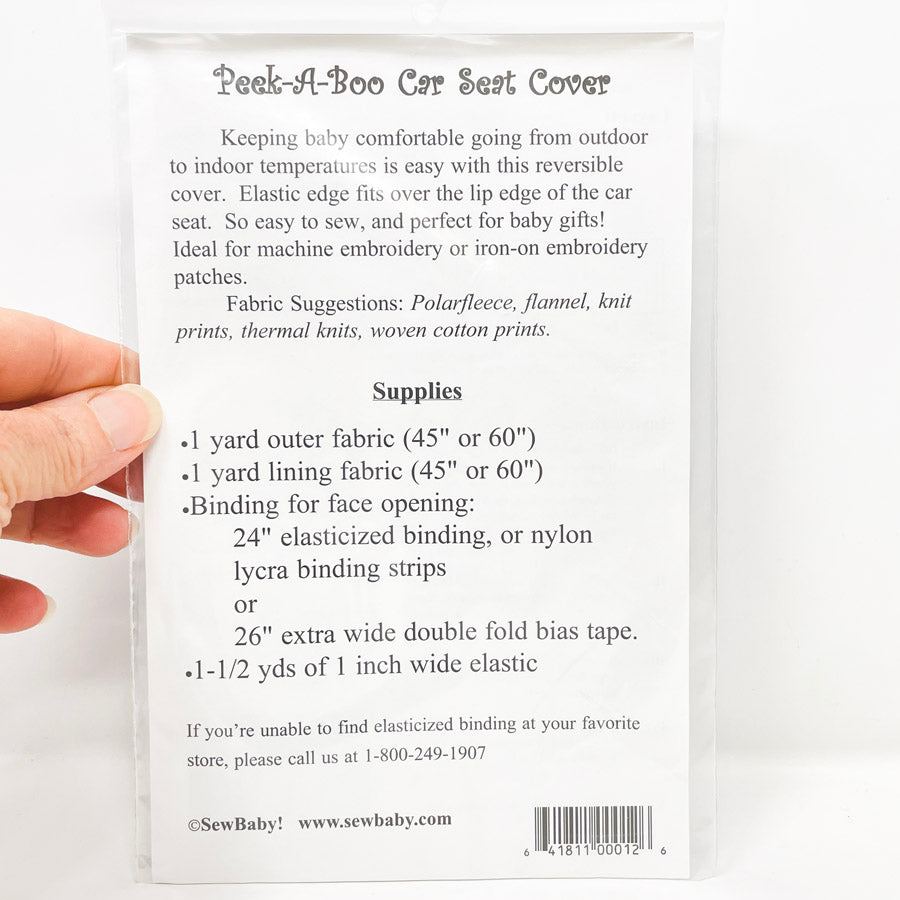 Peek-A-Boo Car Seat Cover
Keeping baby comfortable going from outdoor
to indoor temperatures is easy with this reversible
cover. Elastic edge fits over the lip edge of the car
seat. So easy to sew, and perfect for baby gifts!
Ideal for machine embroidery or iron-on embroidery
patches.
Fabric Suggestions: Polarfleece, flannel, knit
prints, thermal knits, woven cotton prints.
Supplies
•1 yard outer fabric (45" or 60")
•1 yard lining fabric (45" or 60")
•Binding for face opening:
24" elasticized binding, or nylon
lycra binding strips
or
26" extra wide double fold bias tape.
•1-1/2 yds of 1 inch wide elastic
If you're unable to find elasticized binding at your favorite
store, please call us at 1-800-249-1907
©SewBaby! www.sewbaby.com
6 41811 00012 6